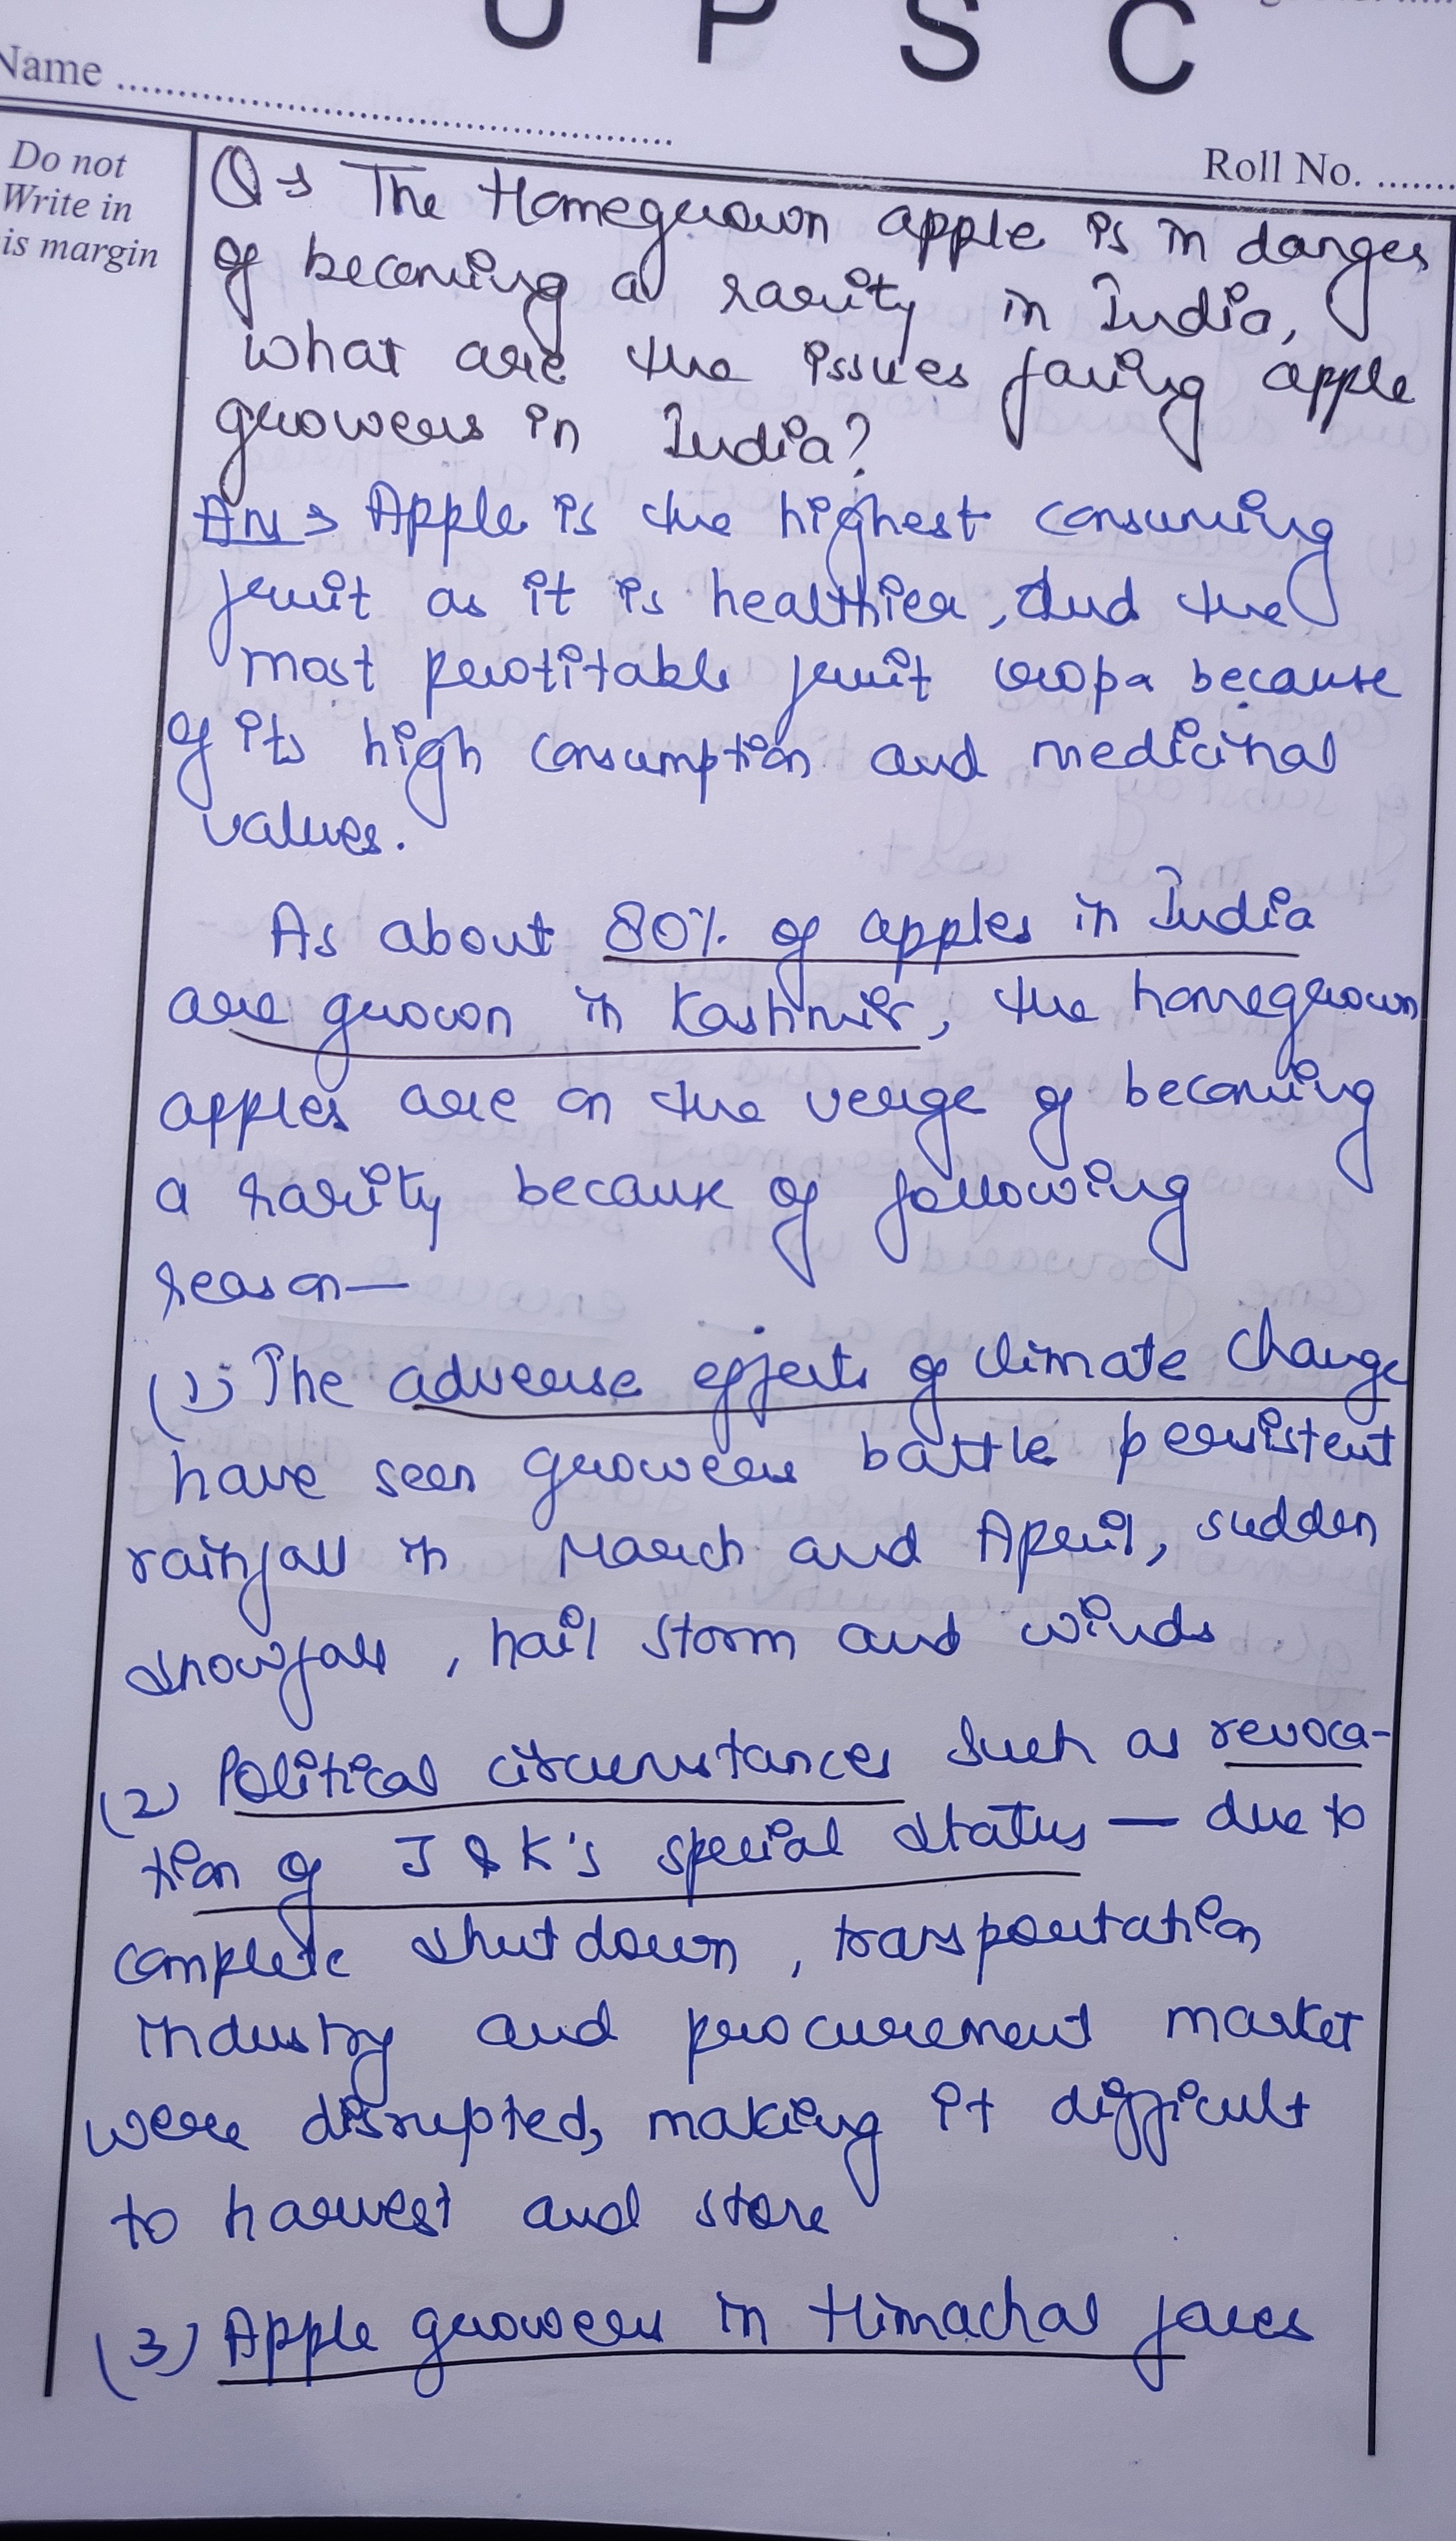 U P S C
Name ........................
Roll No. .......
Do not
Write in
is margin
Q→ The Homegrown apple is in danger
of becoming a rarity in India,
what are the issues facing apple
growers in India?
Ans→ Apple is the highest consuming
fruit as it is healthier, and the
most protitable fruit crops because
of its high consumption and medicinal
values.
As about 80% of apples in India
are grown in Kashmir, the homegrown
apples are on the verge of becoming
a rarity because of following
reason—
(1) The adverse effects of climate change
have seen growers battle persistent
rainfall in March and April, sudden
snowfall, hail storm and winds
(2) Political circumstances such as revoca-
tion of J & K's special status — due to
complete shutdown, transportation
industry and procurement market
were disrupted, making it difficult
to harvest and store
(3) Apple growers in Himachal faces